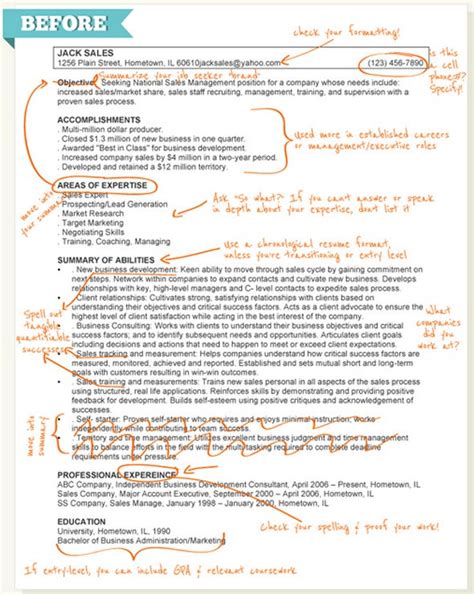 BEFORE
check your formatting!
JACK SALES
1256 Plain Street, Hometown, IL 60610jacksales@yahoo.com
(123) 456-7890
is this a cell phone#? Specify!
Summarize your job seeker brand
Objective: Seeking National Sales Management position for a company whose needs include:
increased sales/market share, sales staff training, sales turnaround, and experience with a
proven sales process.
ACCOMPLISHMENTS
. Multi-million dollar producer.
. Closed $1.3 million of new business in one quarter.
. Awarded "Best in Class" for business development.
. Increased company sales by $4 million in a two-year period.
. Developed and retained a $12 million territory.
used more in established careers
or management/executive roles
AREAS OF EXPERTISE
. Sales Expert
. Prospecting/Lead Generation
. Market Research
. Target Marketing
. Negotiating Skills
. Training, Coaching, Managing
move into
your summary
Ask "So what"? If you cant answer or speak
in depth about your expertise, dont list it
Use a chronological resume format,
unless you're transitioning or entry level
SUMMARY OF ABILITIES
. New business development: Keen ability to move through sales cycle by gaining commitment on
next steps. Network within companies to expand contacts and cultivate new business. Develops
relationships with key, high-level managers and C- level contacts to expedite sales process.
. Client relationships: Cultivates strong, satisfying relationships with clients based on
understanding their objectives and critical success factors. Acts as a client advocate to ensure the
highest level of client satisfaction while acting in the best interest of the company.
. Business Consulting: Works with clients to understand their business objectives and critical
success factors; understand business needs and opportunities. Articulates client goals
including decisions and actions that need to happen to exceed client expectations.
. Sales tracking and measurement: Helps customers understand how critical success factors are
measured, monitored, achieved and reported. Established and sets mutual short and long-term
goals with customers resulting in win-win outcomes.
. Sales training and measurements: Trains new sales personal in all aspects of the sales process
using structured, real life applications. Reinforces skills by demonstrating and providing positive
feedback for development. Builds self-esteem using positive critiques and acknowledgement of
successes.
. Self- starter: Proven self-starter who requires and enjoys minimal instruction, works
independently while contributing to team success.
. Territory and time management: Utilizes excellent business judgment and time management
skills to balance efforts in the field with the multi-tasking required to complete deadline
requirements without sacrificing performance.
Spell out
tangible
quantifiable
successes
What
companies
did you
work at?
move into
summary
PROFESSIONAL EXPEREINCE
ABC Company, Independent Business Development Consultant, April 2006 – Present.
Sales Company, Major Account Executive, September 2000 – April 2006, Hometown, IL
SS Company, Sales Manager, January 1998 – September 2000, Hometown, IL
check your spelling & proof your work!
EDUCATION
University, Hometown, IL, 1990
Bachelor of Business Administration/Marketing
If entry-level, you can include GPA & relevant coursework